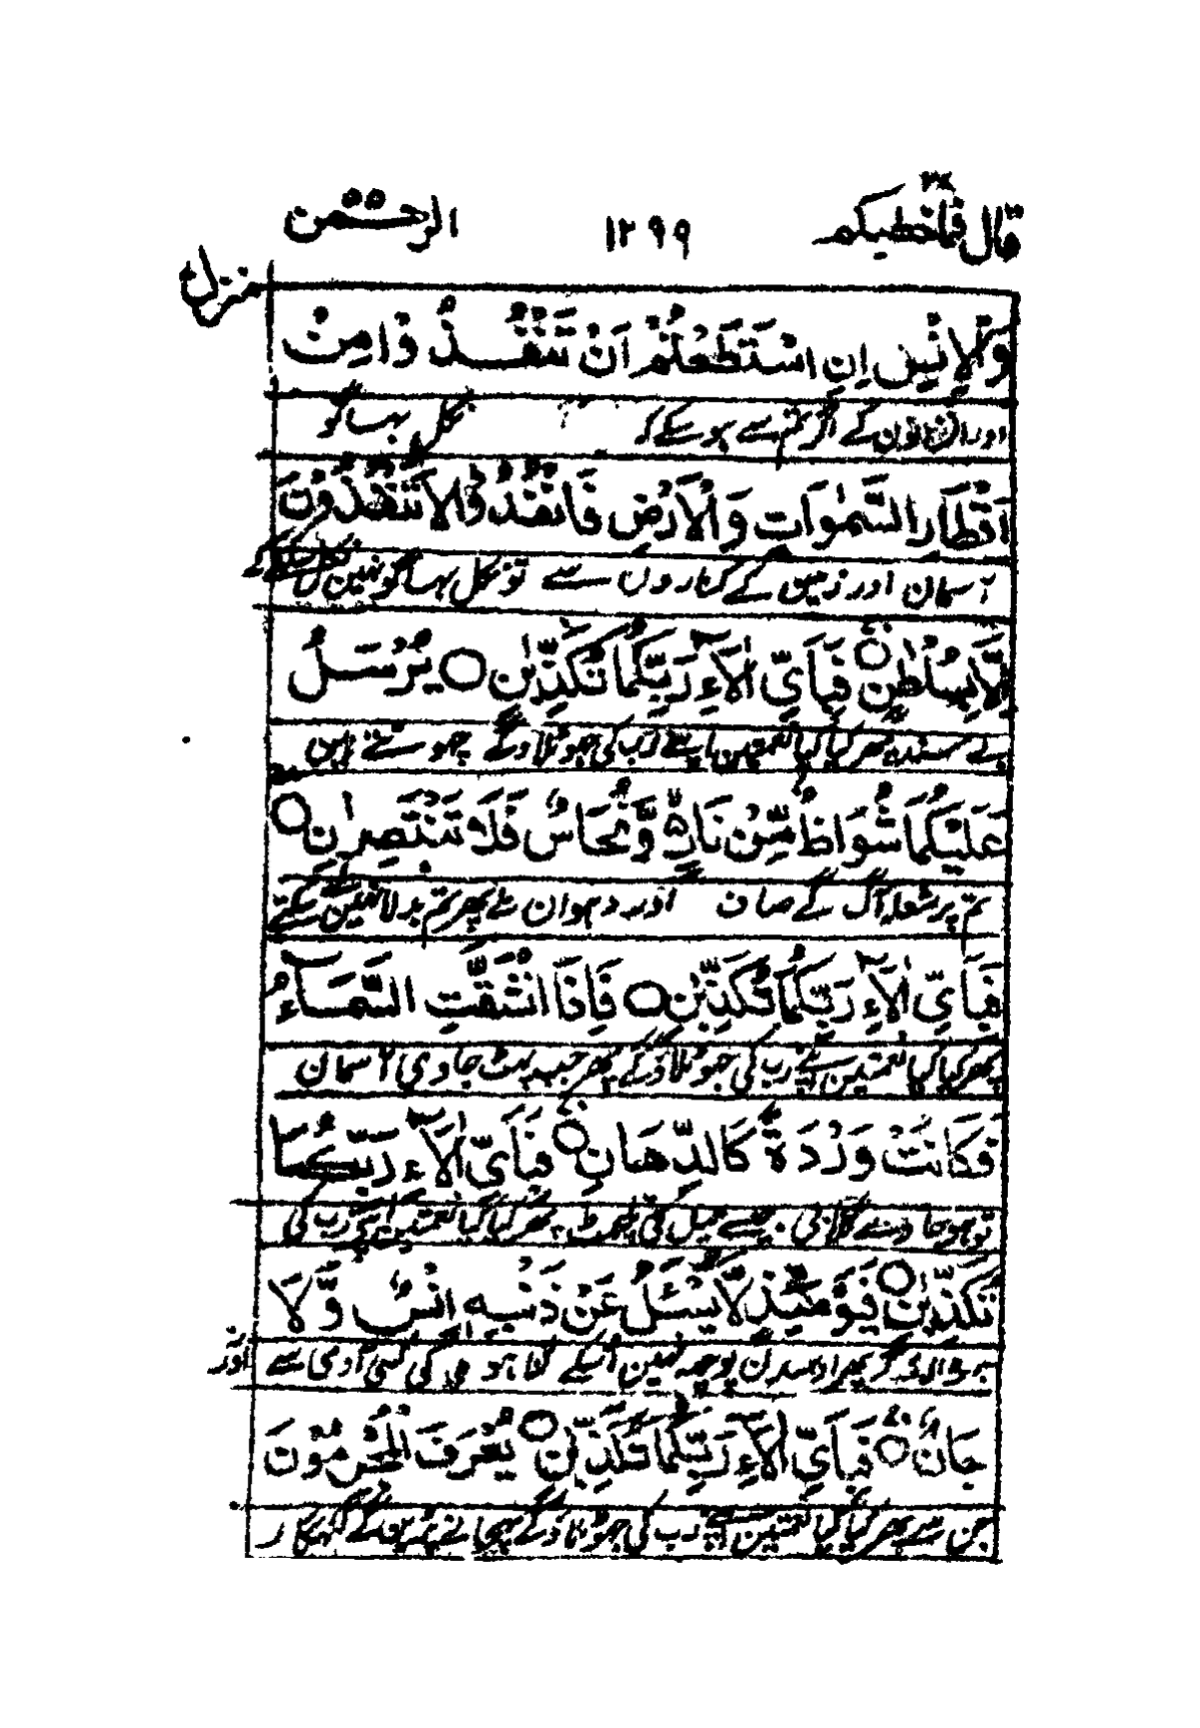 قال فماخطبكم ٢٧ ١٢٩٩ الرحمن ٥٥
منزل
وَالْاِنْسِ اِنِ اسْتَطَعْتُمْ اَنْ تَنْفُذُوْا مِنْ
اور انسانون کے اگر تمسے ہو سکے کہ نکل بہاگو
اَقْطَارِ السَّمٰوٰتِ وَالْاَرْضِ فَانْفُذُوْا لَا تَنْفُذُوْنَ
آسمان اور زمین کے کناروں سے تو نکل بہاگو نہین نکل سکو گے
اِلَّا بِسُلْطٰنٍ ○ فَبِاَيِّ اٰلَآءِ رَبِّكُمَا تُكَذِّبٰنِ ○ يُرْسَلُ
بے سند پھر کیا کیا نعمتین اپنے رب کی جھوٹلاؤگے چھوٹتے ہین
عَلَيْكُمَا شُوَاظٌ مِّنْ نَّارٍ ۵ وَّنُحَاسٌ فَلَا تَنْتَصِرٰنِ ○
تم پر شعلہ آگ کے صاف اور دہوان ملے پھر تم بدلا نہین لے سکتے
فَبِاَيِّ اٰلَآءِ رَبِّكُمَا تُكَذِّبٰنِ ○ فَاِذَا انْشَقَّتِ السَّمَآءُ
پھر کیا کیا نعمتین اپنے رب کی جھوٹلاؤگے پھر جب پھٹ جاوے آسمان
فَكَانَتْ وَرْدَةً كَالدِّهَانِ ○ فَبِاَيِّ اٰلَآءِ رَبِّكُمَا
تو ہو جاوے گلابی جیسے تیل کی تلچھٹ پھر کیا کیا نعمتین اپنے رب کی
تُكَذِّبٰنِ ○ فَيَوْمَئِذٍ لَّا يُسْئَلُ عَنْ ذَنْبِهٖ اِنْسٌ وَّلَا
پھر اوسدن پوچھ نہین اسکے گناہ کی کسی آدمی سے اور نہ
جَانٌّ ○ فَبِاَيِّ اٰلَآءِ رَبِّكُمَا تُكَذِّبٰنِ ○ يُعْرَفُ الْمُجْرِمُوْنَ
جن سے پھر کیا کیا نعمتین اپنے رب کی جھوٹلاؤگے پہچانے پڑین گے گنہگار